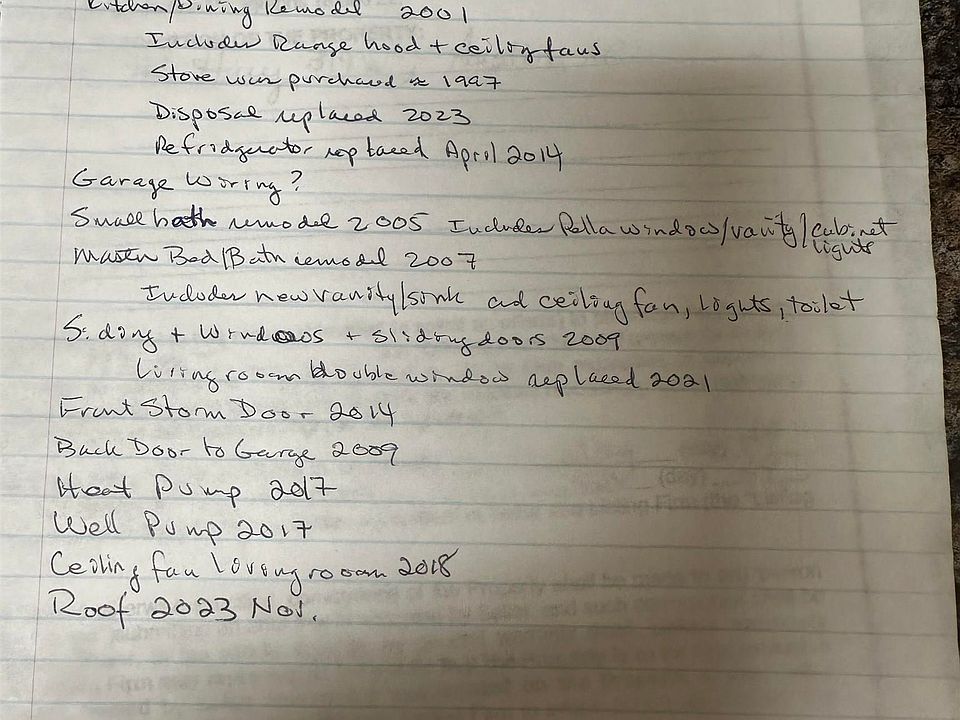 Kitchen/Dining Remodel 2001
Includes Range hood + ceiling fans
Stove was purchased ≈ 1997
Disposal replaced 2023
Refridgerator replaced April 2014
Garage Wiring?
Small bath remodel 2005 Includes Pella window/vanity/cabinet
lights
Master Bed/Bath remodel 2007
Includes new vanity/sink and ceiling fan, lights, toilet
Siding + Windows + sliding doors 2009
Living rooom double window replaced 2021
Front Storm Door 2014
Back Door to Garge 2009
Heat Pump 2017
Well Pump 2017
Ceiling fan living rooom 2018
Roof 2023 Nov.